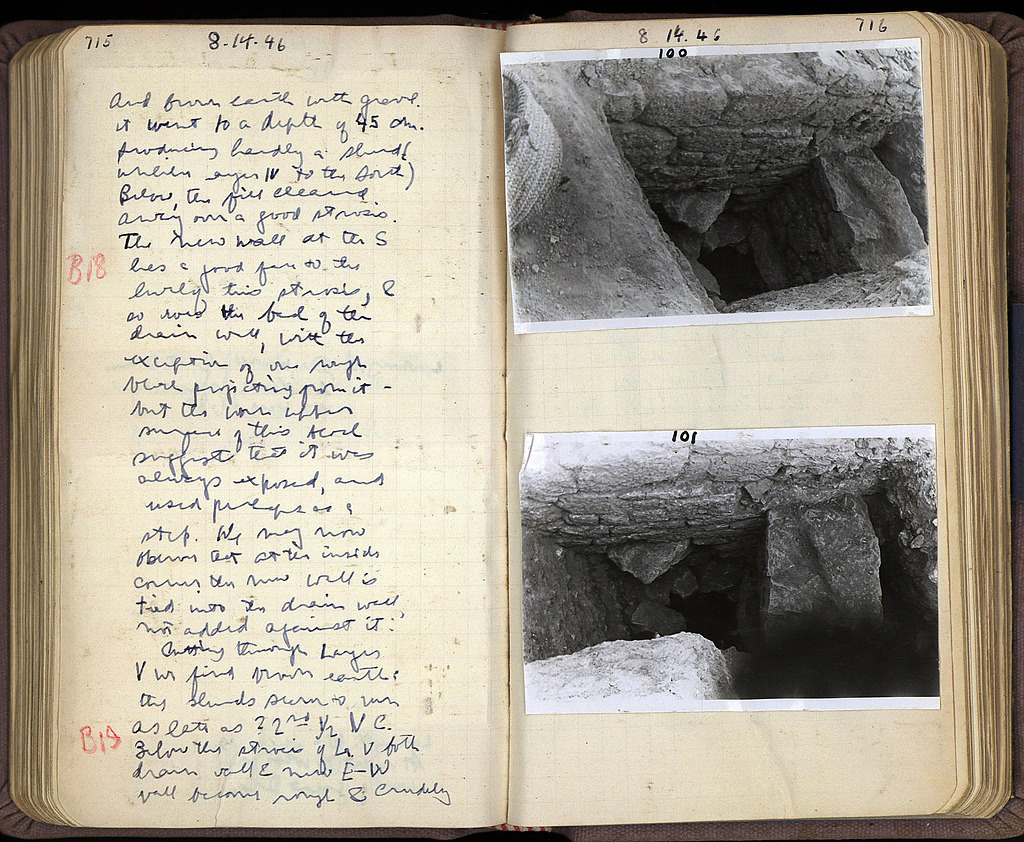 715
8-14-46
And from earth with gravel.
it went to a depth of 45 cm.
producing hardly a sherd (
layer IV to the South)
Below, the fill cleaned
away over a good strosis.
The new wall at the S
B18
has a good face to the
level of this strosis, &
so does the bed of the
drain wall, with the
exception of one rough
block projecting from it -
but the worn upper
surface of this block
suggests that it was
always exposed, and
used perhaps as a
step. We may now
observe that at the inside
corner the new wall is
tied into the drain wall,
not added against it.
Cutting through Layer
V we find brown earth:
the sherds seem to run
as late as ? 2nd ½ IV C.
B19
Below the strosis of La V both
drain wall & new E-W
wall become rough & crudely
8 14. 46
716
100
101